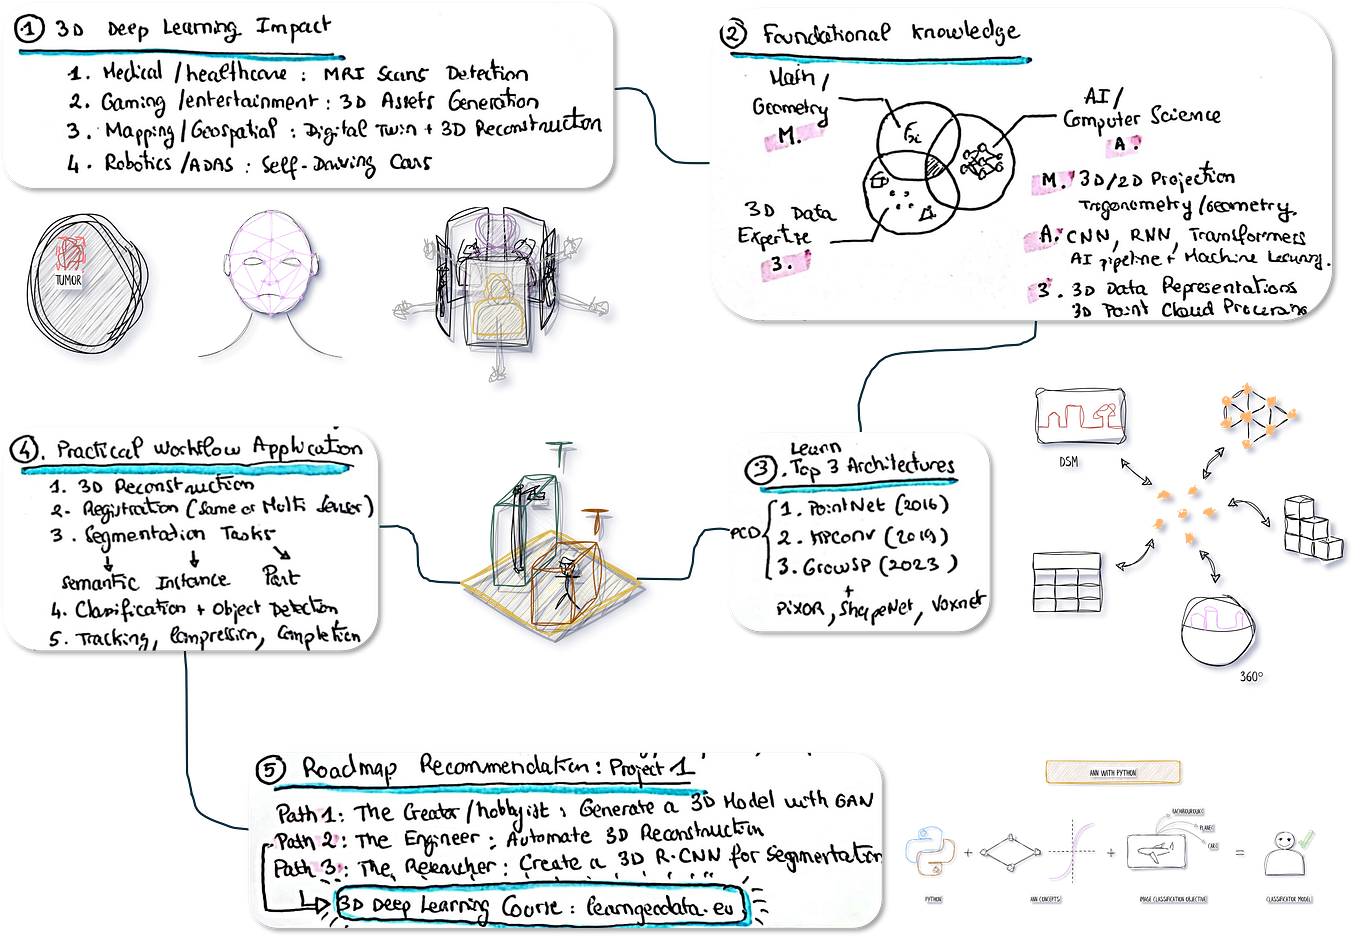 ① 3D Deep Learning Impact
1. Medical/healthcare : MRI Scans Detection
2. Gaming/entertainment : 3D Assets Generation
3. Mapping/Geospatial : Digital Twin + 3D Reconstruction
4. Robotics/ADAS : Self-Driving Cars
TUMOR
② Foundational Knowledge
Math/
Geometry
M.
AI/
Computer Science
A.
3D Data
Expertise
3.
M. 3D/2D Projection
Trigonometry/Geometry.
A. CNN, RNN, Transformers
AI pipeline + Machine Learning.
3. 3D Data Representations
3D Point Cloud Processing
③ Learn
Top 3 Architectures
PCD
1. PointNet (2016)
2. KPConv (2019)
3. GrowSP (2023)
+
PIXOR, ShapeNet, Voxnet
DSM
360°
④. Practical Workflow Application
1. 3D Reconstruction
2. Registration (Same or Multi Sensor)
3. Segmentation Tasks
Semantic Instance Part
4. Classification + Object Detection
5. Tracking, Compression, Completion
⑤ Roadmap Recommendation: Project 1
Path 1: The Creator/hobbyist : Generate a 3D Model with GAN
Path 2: The Engineer : Automate 3D Reconstruction
Path 3: The Researcher : Create a 3D R-CNN for Segmentation
3D Deep Learning Course : learngeodata.eu
ANN WITH PYTHON
PLANE
CAR
+ + =
PYTHON
ANN CONCEPTS
IMAGE CLASSIFICATION OBJECTIVE
CLASSIFIER MODEL